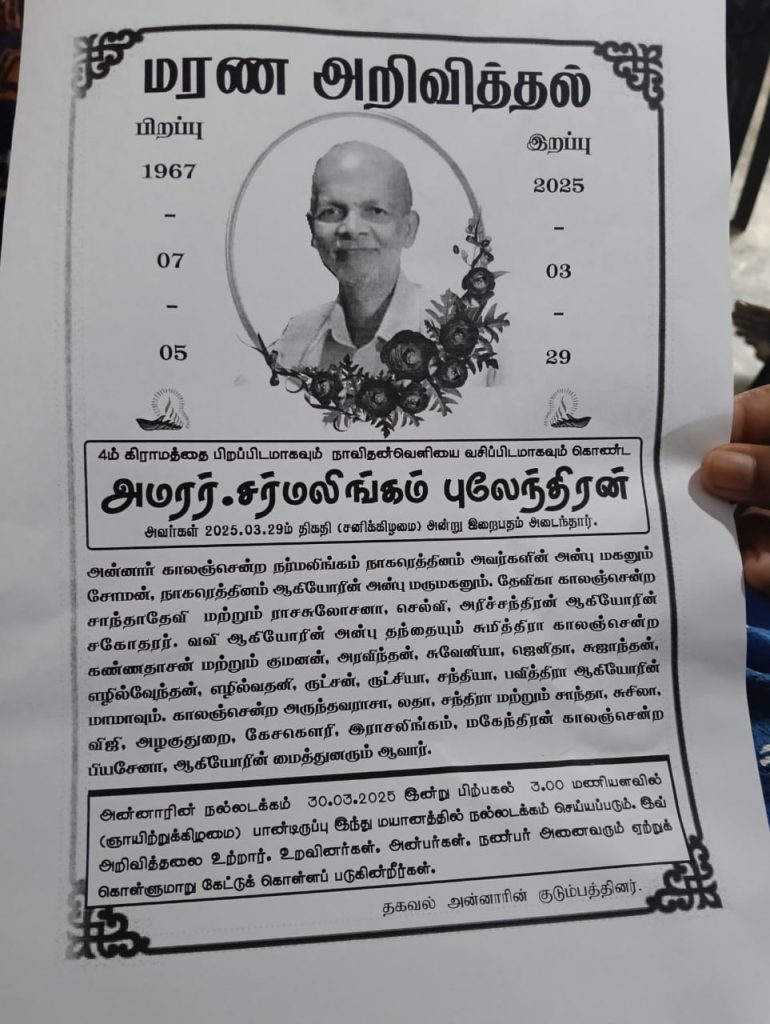 மரண அறிவித்தல்
பிறப்பு
1967
-
07
-
05
இறப்பு
2025
-
03
-
29
4ம் கிராமத்தை பிறப்பிடமாகவும் நாவிதன்வெளியை வசிப்பிடமாகவும் கொண்ட
அமரர்.சர்மலிங்கம் புலேந்திரன்
அவர்கள் 2025.03.29ம் திகதி (சனிக்கிழமை) அன்று இறைபதம் அடைந்தார்.
அன்னார் காலஞ்சென்ற நர்மலிங்கம் நாகரெத்தினம் அவர்களின் அன்பு மகனும்
சோமன், நாகரெத்தினம் ஆகியோரின் அன்பு மருமகனும். தேவிகா காலஞ்சென்ற
சாந்தாதேவி மற்றும் ராசசுலோசனா, செல்வி, அரிச்சந்திரன் ஆகியோரின்
சகோதரர். வவி ஆகியோரின் அன்பு தந்தையும் சுமித்திரா காலஞ்சென்ற
கண்ணதாசன் மற்றும் குமனன், அரவிந்தன், சுவேனியா, ஜெனிதா, சுஜாந்தன்,
எழில்வேந்தன், எழில்வதனி, ருட்சன், ருட்சியா, சந்தியா, பவித்திரா ஆகியோரின்
மாமாவும். காலஞ்சென்ற அருந்தவராசா, லதா, சந்திரா மற்றும் சாந்தா, சுசிலா,
விஜி, அழகுதுறை, கேசகௌரி, இராசலிங்கம், மகேந்திரன் காலஞ்சென்ற
பியசேனா, ஆகியோரின் மைத்துனரும் ஆவார்.
அன்னாரின் நல்லடக்கம் 30.03.2025 இன்று பிற்பகல் 3.00 மணியளவில்
(ஞாயிற்றுக்கிழமை) பாண்டிருப்பு இந்து மயானத்தில் நல்லடக்கம் செய்யப்படும். இவ்
அறிவித்தலை உற்றார். உறவினர்கள். அன்பர்கள். நண்பர் அனைவரும் ஏற்றுக்
கொள்ளுமாறு கேட்டுக் கொள்ளப் படுகின்றீர்கள்.
தகவல் அன்னாரின் குடும்பத்தினர்.